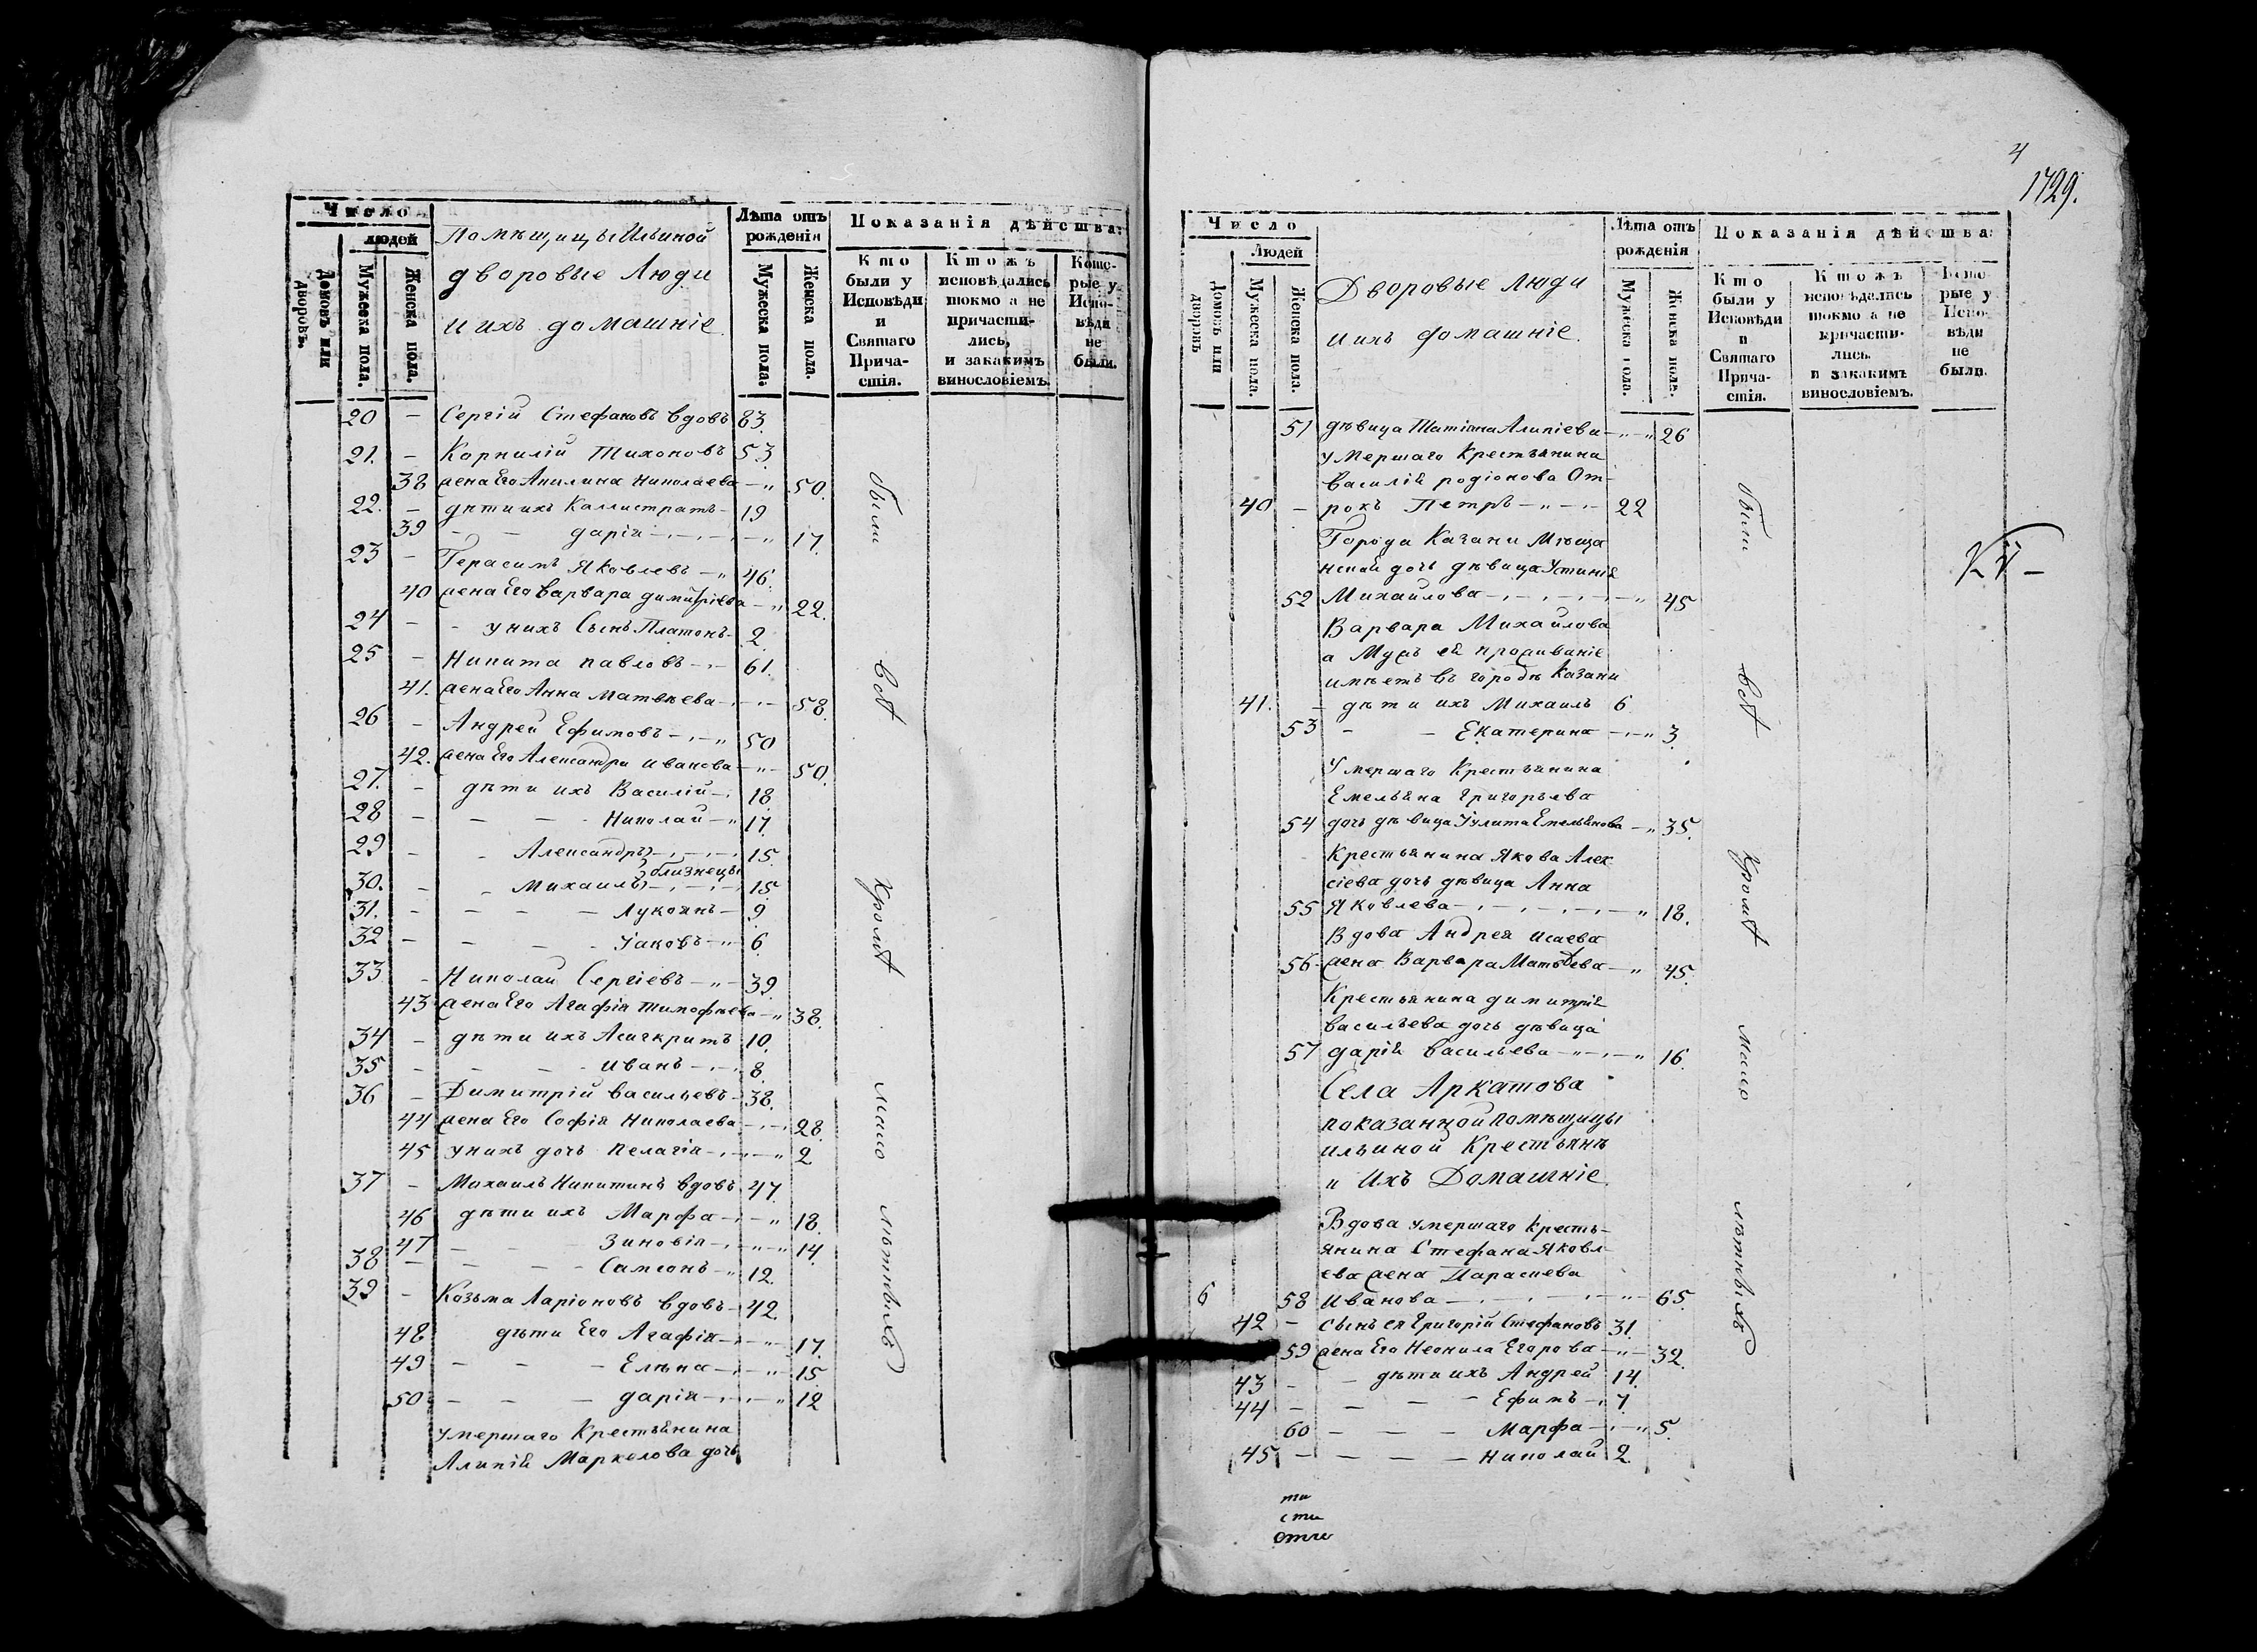 Число
людей
Домовъ или дворовъ.
Мужеска пола.
Женска пола.
Помѣщицы Ильиной
дворовые Люди
и ихъ домашніе.
Лѣта отъ рожденія
Мужеска пола.
Женска пола.
Показанія дѣйства:
Кто были у Исповѣди и Святаго Прича-стія.
Ктожъ исповѣдались токмо а не причасти-лись, и закакимъ винословіемъ.
Кото-рые у Испо-вѣди не были.
20 – Сергій Стефановъ вдовъ 83.
21. – Корнилій Тихоновъ 53.
38 жена Его Акилина Николаева – „ 50.
22. – дѣти ихъ Каллистратъ – 19
39 – – дарія – „ 17.
23 – Герасимъ Яковлевъ – „ 46.
40 жена Его Варвара димитріева – „ 22.
24 – – у нихъ Сынъ Платонъ – 2.
25 – Никита павловъ – 61.
41. жена Его Анна Матвѣева – 58.
26 – Андрей Ефимовъ – „ 50
42. жена Его Александра иванова – „ 50.
27. – дѣти ихъ Василій – 18.
28 – – – Николай – „ 17.
29 – – Александръ – 15.
близнецы
30. – – Михаилъ – 15.
31. – – – – Лукоянъ – 9.
32 – – – – Іаковъ – „ 6.
33 – Николай Сергіевъ – „ 39.
43 жена Его Агафія тимофѣева – „ 38.
34 – дѣти ихъ Асигкритъ 10.
35 – – – иванъ – 8.
36 – Димитрій васильевъ – 38.
44 жена Его Софія Николаева – 28.
45 у нихъ дочь Пелагія – „ 2
37 – Михаилъ Никитинъ вдовъ 47.
46 дѣти ихъ Марфа – „ 18.
47 – – Зиновія – „ 14.
38 – – – – Самсонъ – „ 12.
39 – Козьма Ларіоновъ вдовъ – 42.
48 дѣти Его Агафія – „ 17.
49 – – – Елѣна – „ 15.
50 – – – дарія – „ 12
умершаго Крестьянина
Алипія Маркелова дочь
были всѣ кромѣ мало лѣтныхъ
4
1729.
Число
Людей
Домовъ или дворовъ
Мужеска пола.
Женска пола.
Дворовые Люди
и ихъ домашніе.
Лѣта отъ рожденія
Мужеска пола.
Женска пола.
Показанія дѣйства:
Кто были у Исповѣди и Святаго Прича-стія.
Ктожъ исповѣдались токмо а не причасти-лись. и закакимъ винословіемъ.
Кото-рые у Испо-вѣди не были.
51 дѣвица Татіана Алипіева – „ 26
умершаго Крестьянина
василія родіонова От-
40 – рокъ Петръ – „ – 22
Города Казани Мѣща
нской дочь дѣвица Устинія
52 Михайлова – „ 45
Варвара Михайлова
а Мужъ ея проживаніе
имѣетъ въ городѣ Казани
41. – дѣти ихъ Михаилъ 6
53 – – Екатерина – „ 3.
Умершаго Крестьянина
Емельяна григорьева
54 дочь дѣвица Іулита Емельянова – „ 35.
Крестьянина Якова Алек
сіева дочь дѣвица Анна
55 Яковлева – „ 18.
Вдова Андрея исаева
56 жена Варвара Матвѣева – „ 45.
Крестьянина димитрія
васильева дочь дѣвица
57 дарія васильева – „ 16.
Села Аркатова
показанной помѣщицы
ильиной Крестьянъ
и Ихъ Домашніе.
Вдова умершаго кресть-
янина Стефана Яковл-
ева жена Параскева
6 58 Иванова – „ 65.
42 – сынъ ея Григорій Стефановъ 31.
59 жена Его Неонила Егорова – „ 32.
43 – – дѣти ихъ Андрей 14.
44 – – – – Ефимъ – 7.
60 – – – Марфа – „ 5.
45 – – – – Николай 2.
были всѣ кромѣ мало лѣтныхъ
ти
сти